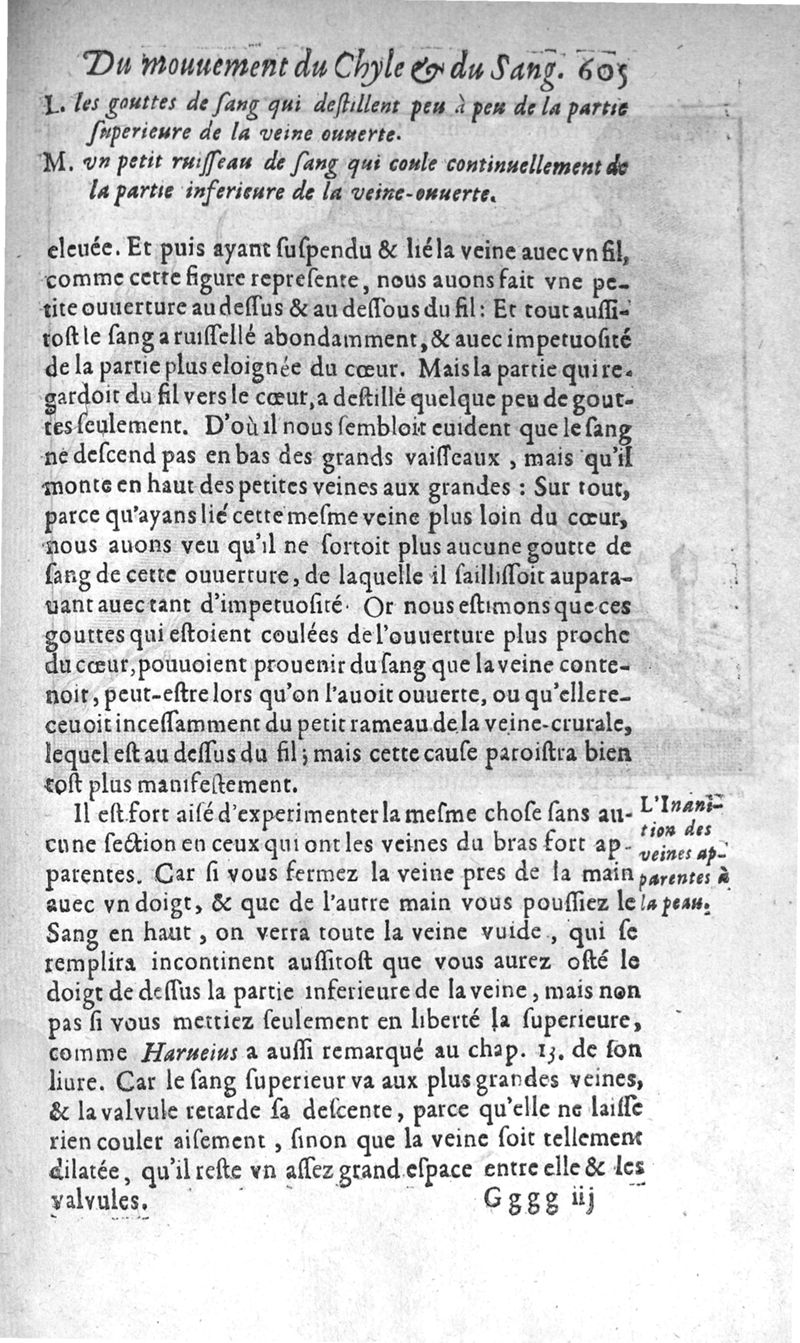 Du mouuement du Chyle & du Sang. 605
L. les gouttes de ſang qui deſtillent peu à peu de la partie
ſuperieure de la veine ouuerte.
M. vn petit ruiſſeau de ſang qui coule continuellement de
la partie inferieure de la veine-ouuerte.
eleuée. Et puis ayant ſuſpendu & lié la veine auec vn fil,
comme cette figure repreſente, nous auons fait vne pe-
tite ouuerture au deſſus & au deſſous du fil: Et tout auſſi-
toſt le ſang a ruiſſellé abondamment, & auec impetuoſité
de la partie plus eloignée du cœur. Mais la partie qui re-
gardoit du fil vers le cœur, a deſtillé quelque peu de gout-
tes ſeulement. D'où il nous ſembloit euident que le ſang
ne deſcend pas en bas des grands vaiſſeaux, mais qu'il
monte en haut des petites veines aux grandes: Sur tout,
parce qu'ayans lié cette meſme veine plus loin du cœur,
nous auons veu qu'il ne ſortoit plus aucune goutte de
ſang de cette ouuerture, de laquelle il ſailliſſoit aupara-
uant auec tant d'impetuoſité. Or nous eſtimons que ces
gouttes qui eſtoient coulées de l'ouuerture plus proche
du cœur, pouuoient prouenir du ſang que la veine conte-
noit, peut-eſtre lors qu'on l'auoit ouuerte, ou qu'elle re-
ceuoit inceſſamment du petit rameau de la veine-crurale,
lequel eſt au deſſus du fil; mais cette cauſe paroiſtra bien
toſt plus manifeſtement.
Il eſt fort aiſé d'experimenter la meſme choſe ſans au-
cune ſection en ceux qui ont les veines du bras fort ap-
parentes. Car ſi vous fermez la veine pres de la main
auec vn doigt, & que de l'autre main vous pouſſiez le
Sang en haut, on verra toute la veine vuide, qui ſe
remplira incontinent auſſitoſt que vous aurez oſté le
doigt de deſſus la partie inferieure de la veine, mais non
pas ſi vous mettiez ſeulement en liberté la ſuperieure,
comme Harueius a auſſi remarqué au chap. 13. de ſon
liure. Car le ſang ſuperieur va aux plus grandes veines,
& la valvule retarde ſa deſcente, parce qu'elle ne laiſſe
rien couler aiſement, ſinon que la veine ſoit tellement
dilatée, qu'il reſte vn aſſez grand eſpace entre elle & les
valvules.
L'Inani-
tion des
veines ap-
parentes à
la peau.
Gggg iij